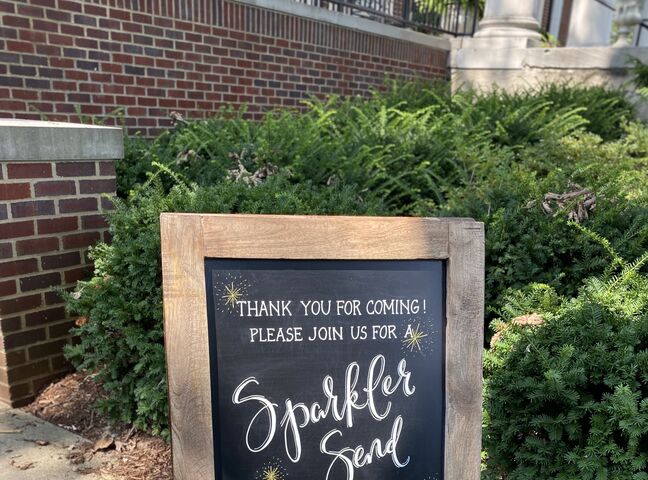 THANK YOU FOR COMING!
PLEASE JOIN US FOR A
Sparkler
Send